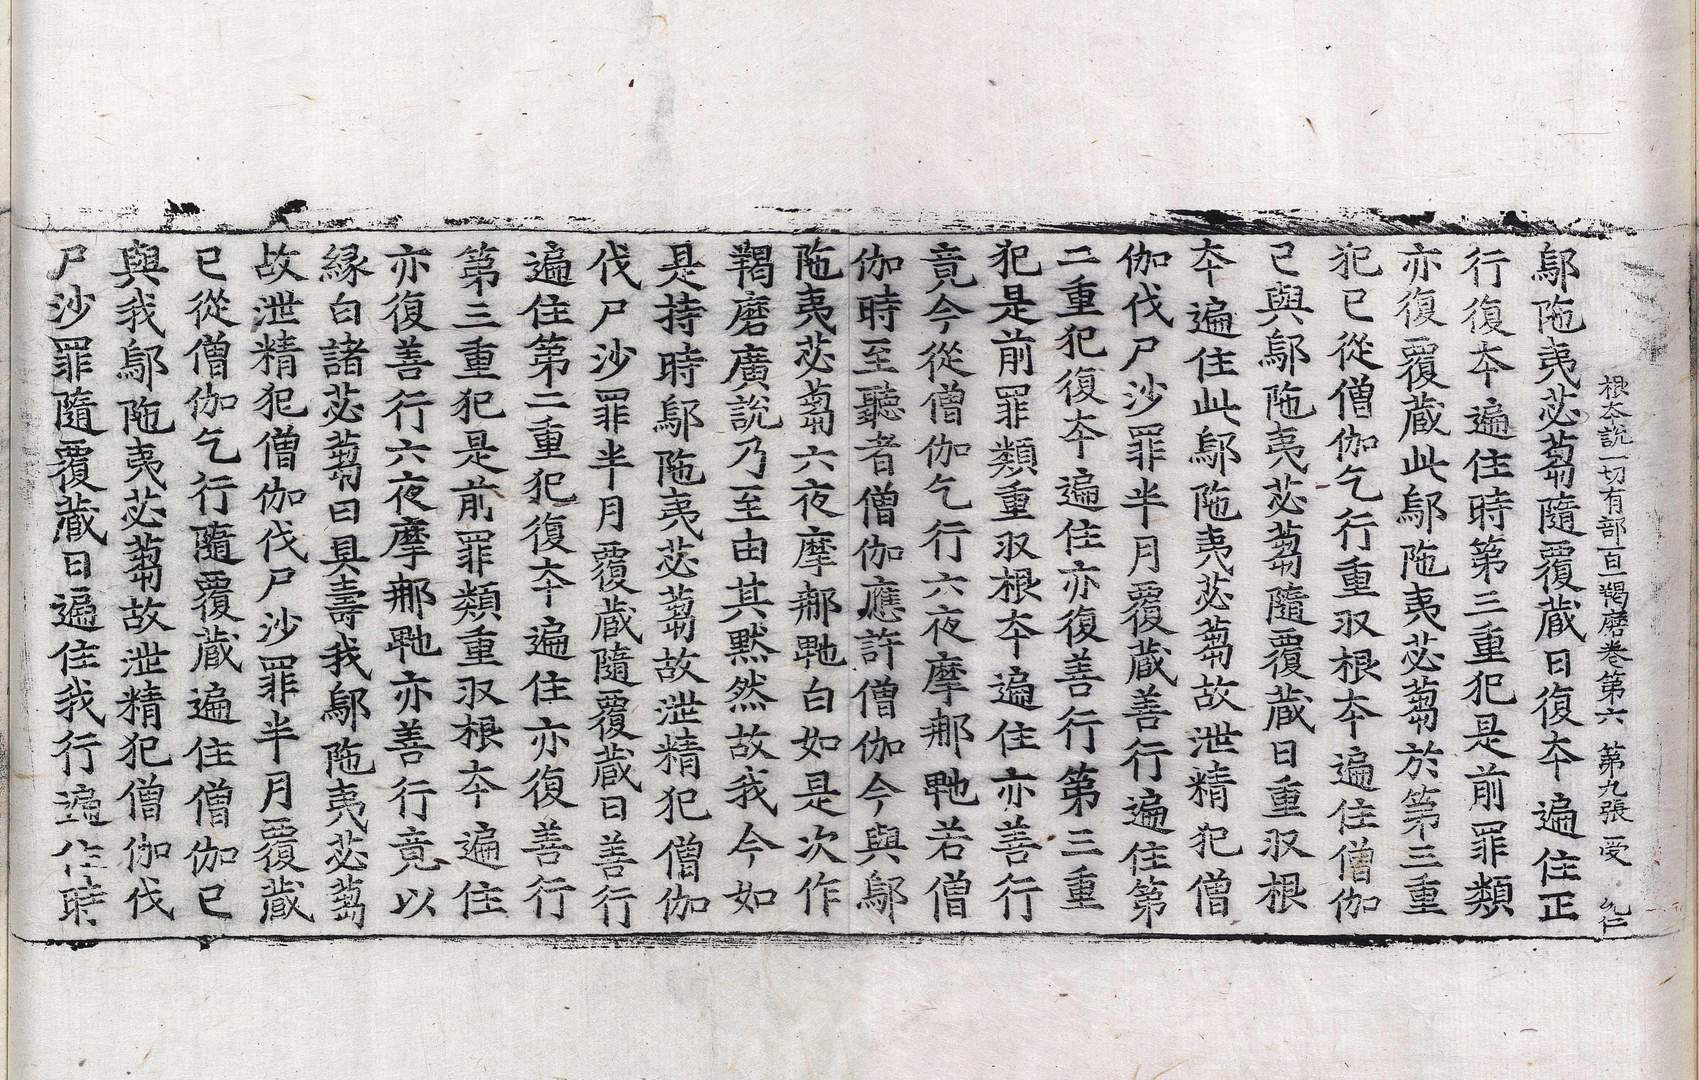 根夲說一切有部百一羯磨卷第六 第九張 受
鄔陁夷苾蒭隨覆藏日復夲遍住正
行復夲遍住時第三重犯是前罪類
亦復覆藏此鄔陁夷苾蒭於第三重
犯已從僧伽乞行重収根夲遍住僧伽
已與鄔陁夷苾蒭隨覆藏日重収根
夲遍住此鄔陁夷苾蒭故泄精犯僧
伽伐尸沙罪半月覆藏善行遍住第
二重犯復夲遍住亦復善行第三重
犯是前罪類重収根夲遍住亦善行
竟今從僧伽乞行六夜摩那𤘽若僧
伽時至聽者僧伽應許僧伽今與鄔
陁夷苾蒭六夜摩那𤘽白如是次作
羯磨廣說乃至由其黙然故我今如
是持時鄔陁夷苾蒭故泄精犯僧伽
伐尸沙罪半月覆藏隨覆藏日善行
遍住第二重犯復夲遍住亦復善行
第三重犯是前罪類重収根夲遍住
亦復善行六夜摩那𤘽亦善行竟以
緣白諸苾蒭曰具壽我鄔陁夷苾蒭
故泄精犯僧伽伐尸沙罪半月覆藏
已從僧伽乞行隨覆藏遍住僧伽已
與我鄔陁夷苾蒭故泄精犯僧伽伐
尸沙罪隨覆藏日遍住我行遍住時